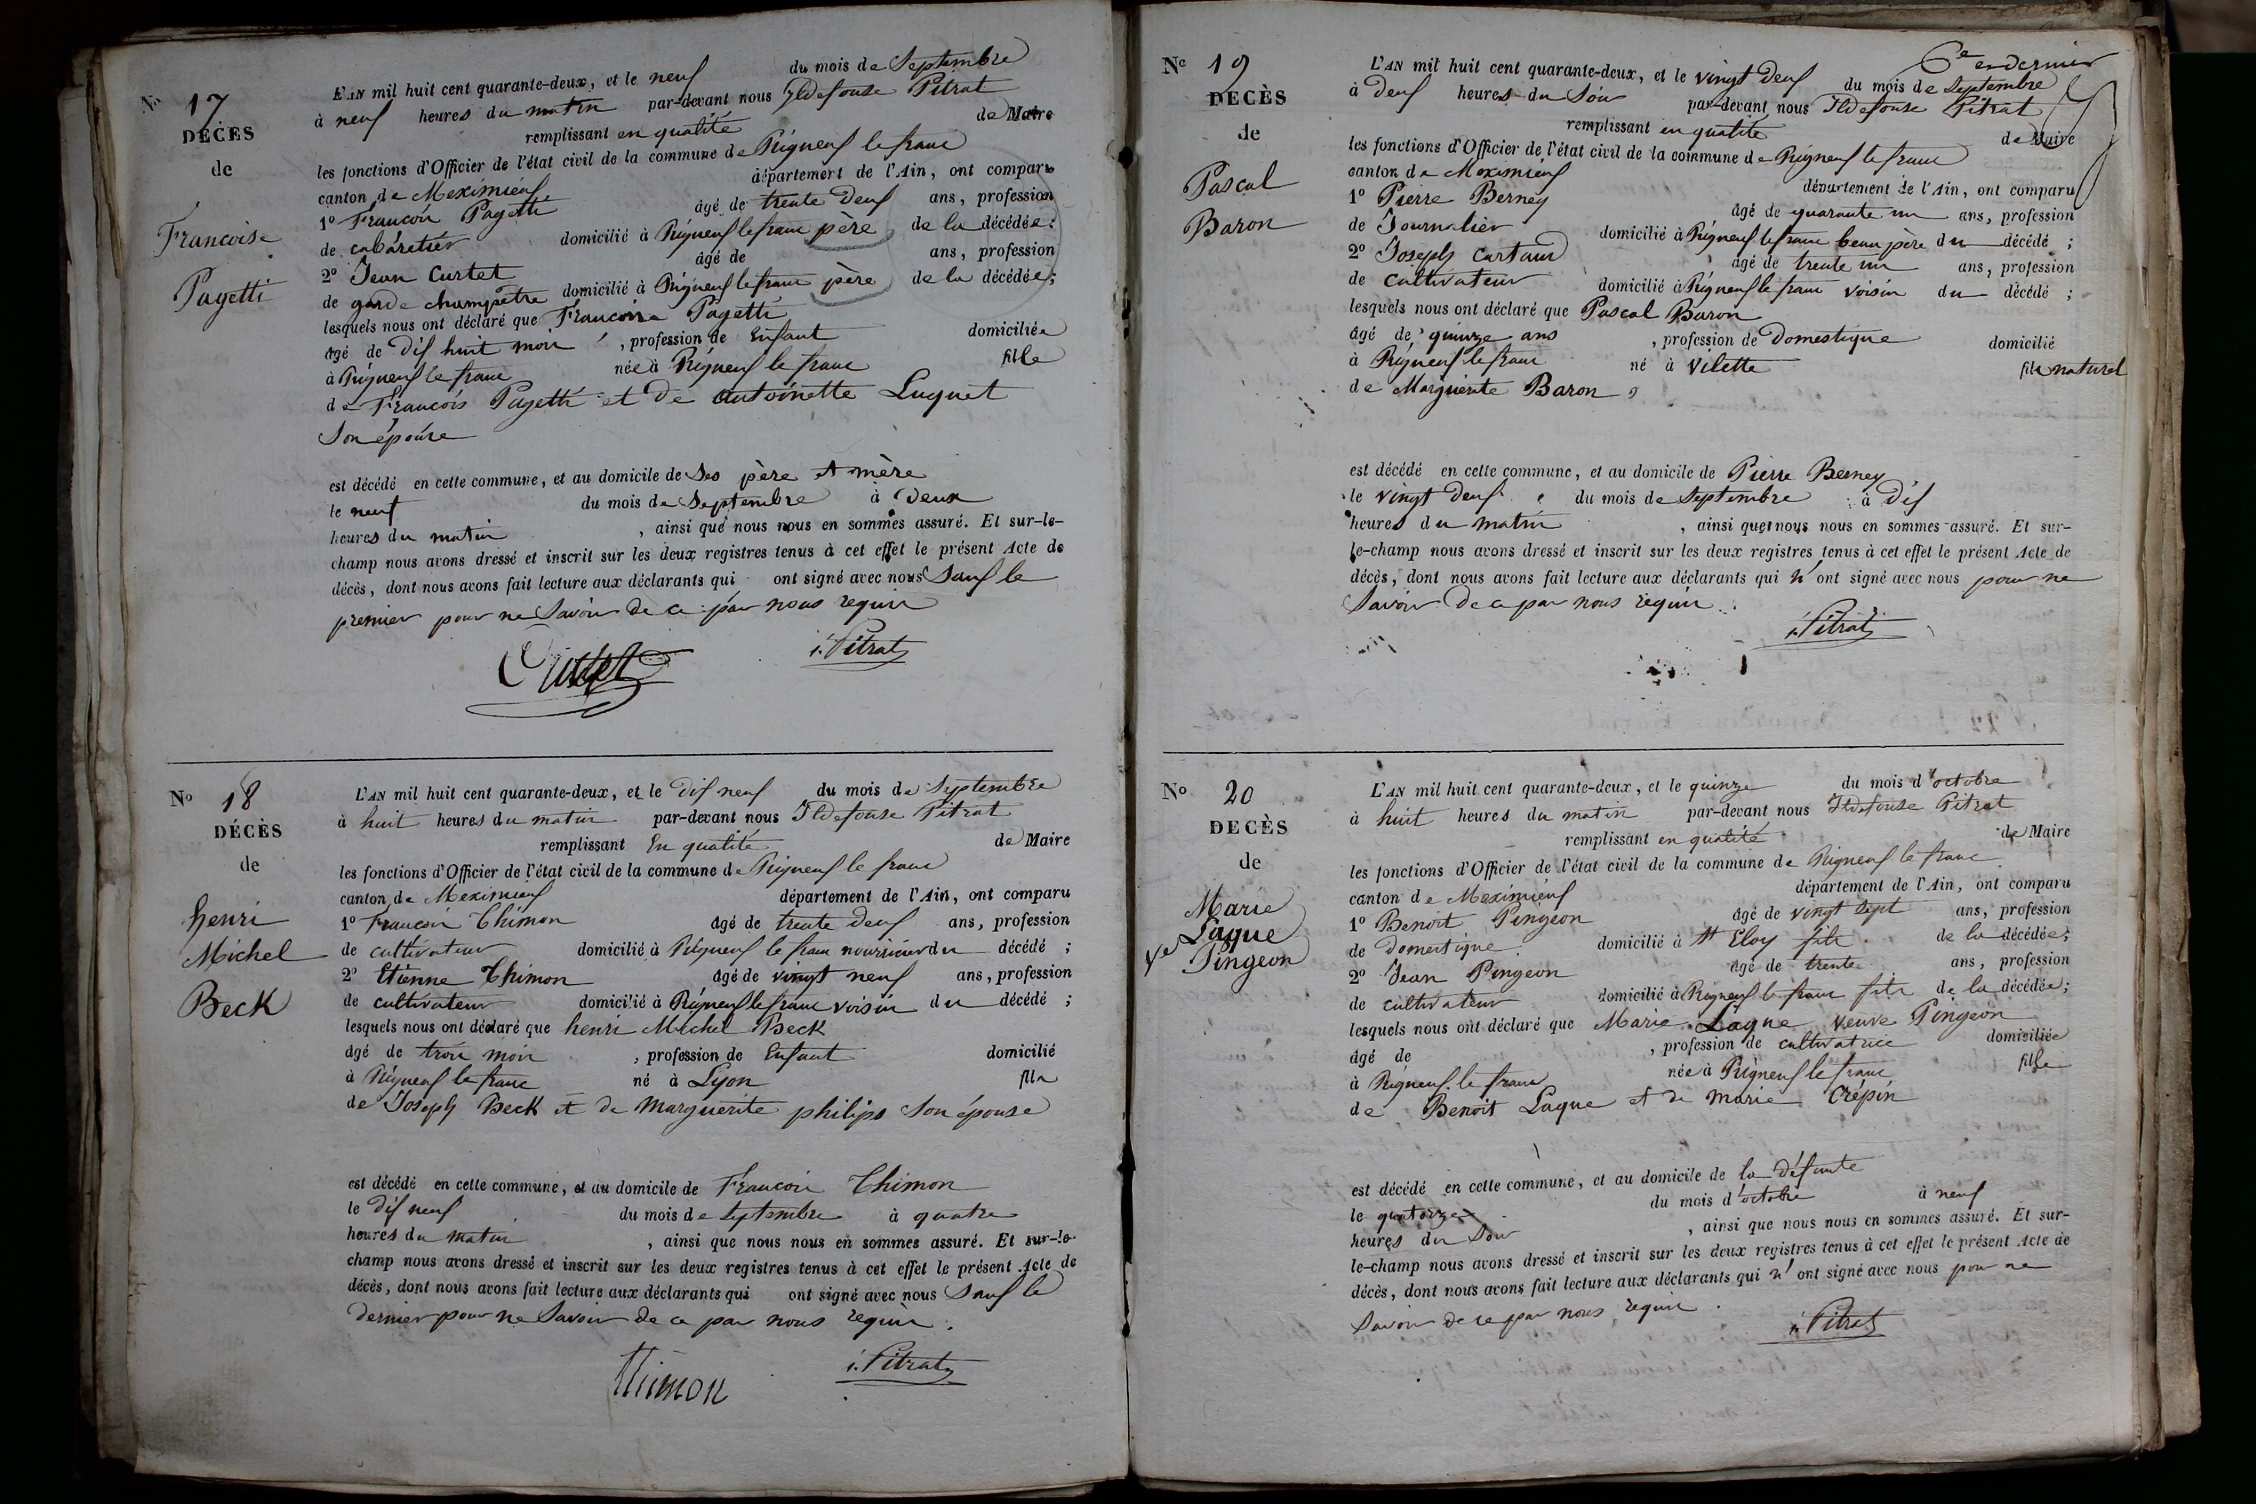 No 17
DÉCÈS
de
Francoise
Pagetti
L'AN mil huit cent quarante-deux, et le neuf du mois de Septembre
à neuf heures du matin par-devant nous Ildefonse Pitrat
remplissant en qualité de Maire
les fonctions d'Officier de l'état civil de la commune de Rigneuf le franc
canton de Meximieuf département de l'Ain, ont comparu
1º Francois Pagetti âgé de trente deuf ans, profession
de cabaretier domicilié à Rigneuf le franc père de la décédée;
2º Jean Curtet âgé de ans, profession
de garde champêtre domicilié à Rigneuf le franc père de la décédée;
lesquels nous ont déclaré que Francoise Pagetti
âgé de dif huit moi , profession de Enfant domiciliée
à Rigneuf le franc née à Rigneuf le franc fille
de Francois Pagetti et de Antoinette Luquet
Son épouse
est décédé en cette commune, et au domicile de Ses père et mère
le neuf du mois de Septembre à deux
heures du matin , ainsi que nous nous en sommes assuré. Et sur-le-
champ nous avons dressé et inscrit sur les deux registres tenus à cet effet le présent Acte de
décès, dont nous avons fait lecture aux déclarants qui ont signé avec nous Sauf le
premier pour ne Savoir de ce par nous requis
Curtet i. Pitrat
No 18
DÉCÈS
de
henri
Michel
Beck
L'AN mil huit cent quarante-deux, et le dif neuf du mois de Septembre
à huit heures du matin par-devant nous Ildefonse Pitrat
remplissant En qualité de Maire
les fonctions d'Officier de l'état civil de la commune de Rigneuf le franc
canton de Meximieuf département de l'Ain, ont comparu
1º Francois Thimon âgé de trente deuf ans, profession
de cultivateur domicilié à Rigneuf le franc nourricier du décédé ;
2º Etienne Thimon âgé de vingt neuf ans, profession
de cultivateur domicilié à Rigneuf le franc voisin du décédé ;
lesquels nous ont déclaré que henri Michel Beck
âgé de trois mois , profession de Enfant domicilié
à Rigneuf le franc né à Lyon fils
de Joseph Beck et de Marguerite philips Son épouse
est décédé en cette commune, et au domicile de Francois Thimon
le dif neuf du mois de Septembre à quatre
heures du matin , ainsi que nous nous en sommes assuré. Et sur-le-
champ nous avons dressé et inscrit sur les deux registres tenus à cet effet le présent Acte de
décès, dont nous avons fait lecture aux déclarants qui ont signé avec nous Sauf le
dernier pour ne Savoir de ce par nous requis.
Thimon i. Pitrat
6e en dernier
No 19
DÉCÈS
de
Pascal
Baron
L'AN mil huit cent quarante-deux, et le vingt deuf du mois de Septembre
à deuf heures du Soir par-devant nous Ildefonse Pitrat
remplissant en qualité de Maire
les fonctions d'Officier de l'état civil de la commune de Rigneuf le franc
canton de Meximieuf département de l'Ain, ont comparu
1º Pierre Berney âgé de quarante un ans, profession
de Journalier domicilié à Rigneuf le franc beau père du décédé ;
2º Joseph Cartaud âgé de trente un ans, profession
de cultivateur domicilié à Rigneuf le franc voisin du décédé ;
lesquels nous ont déclaré que Pascal Baron
âgé de quinze ans , profession de Domestique domicilié
à Rigneuf le franc né à Vilette fils naturel
de Marguerite Baron
est décédé en cette commune, et au domicile de Pierre Berney
le vingt deuf du mois de Septembre à dif
heures du matin , ainsi que nous nous en sommes assuré. Et sur-
le-champ nous avons dressé et inscrit sur les deux registres tenus à cet effet le présent Acte de
décès, dont nous avons fait lecture aux déclarants qui n'ont signé avec nous pour ne
Savoir de ce par nous requis.
i. Pitrat
No 20
DÉCÈS
de
Marie
Laque
Ve Pingeon
L'AN mil huit cent quarante-deux, et le quinze du mois d'octobre
à huit heures du matin par-devant nous Ildefonse Pitrat
remplissant en qualité de Maire
les fonctions d'Officier de l'état civil de la commune de Rigneuf le franc
canton de Meximieuf département de l'Ain, ont comparu
1º Benoit Pingeon âgé de vingt Sept ans, profession
de domestique domicilié à St Eloy fils de la décédée;
2º Jean Pingeon âgé de trente ans, profession
de cultivateur domicilié à Rigneuf le franc fils de la décédée;
lesquels nous ont déclaré que Marie Laque veuve Pingeon
âgé de , profession de cultivatrice domiciliée
à Rigneuf le franc née à Rigneuf le franc fille
de Benoit Laque et de Marie Crépin
est décédé en cette commune, et au domicile de la défunte
le quatorze du mois d'octobre à neuf
heures du Soir , ainsi que nous nous en sommes assuré. Et sur-
le-champ nous avons dressé et inscrit sur les deux registres tenus à cet effet le présent Acte de
décès, dont nous avons fait lecture aux déclarants qui n'ont signé avec nous pour ne
Savoir de ce par nous requis.
i. Pitrat